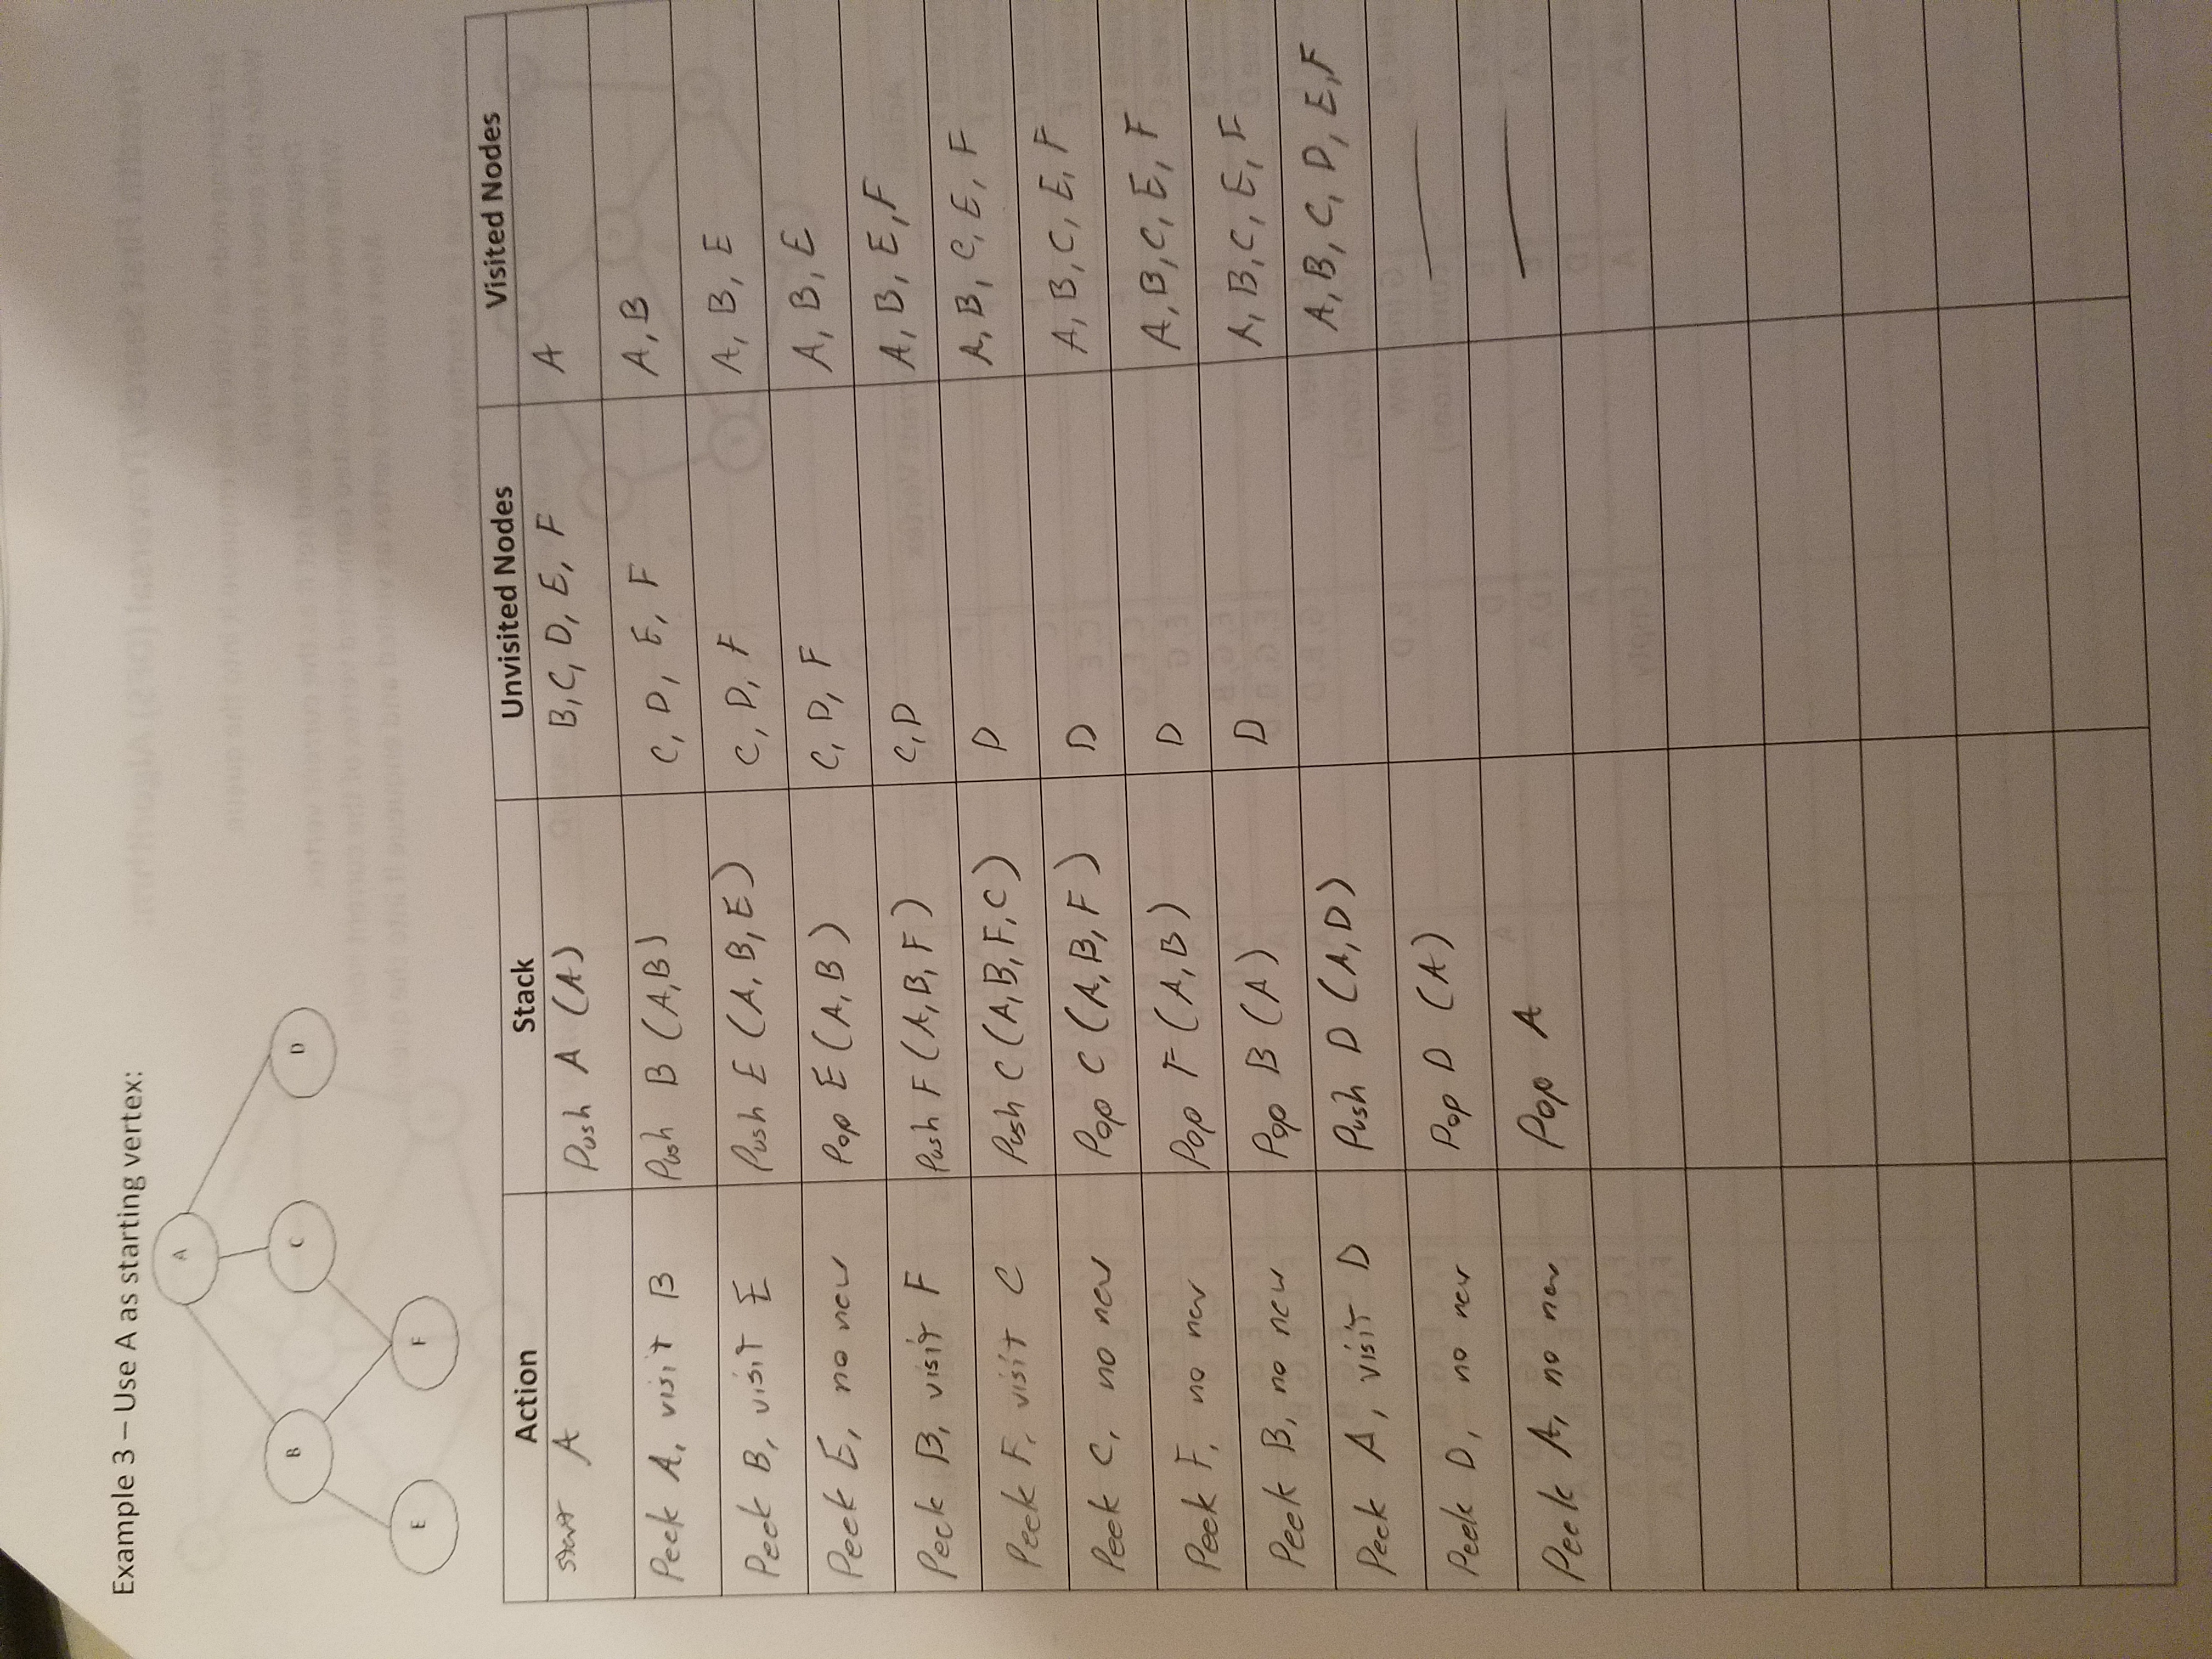 Example 3 – Use A as starting vertex:
A
B C D
E F
Action Stack Unvisited Nodes Visited Nodes
start A Push A (A) B, C, D, E, F A
Peek A, visit B Push B (A,B) C, D, E, F A, B
Peek B, visit E Push E (A, B, E) C, D, F A, B, E
Peek E, no new Pop E (A, B) C, D, F A, B, E
Peek B, visit F Push F (A, B, F) C, D A, B, E, F
Peek F, visit C Push C (A, B, F, C) D A, B, C, E, F
Peek C, no new Pop C (A, B, F) D A, B, C, E, F
Peek F, no new Pop F (A, B) D A, B, C, E, F
Peek B, no new Pop B (A) D A, B, C, E, F
Peek A, visit D Push D (A, D) A, B, C, D, E, F
Peek D, no new Pop D (A) —
Peek A, no new Pop A —